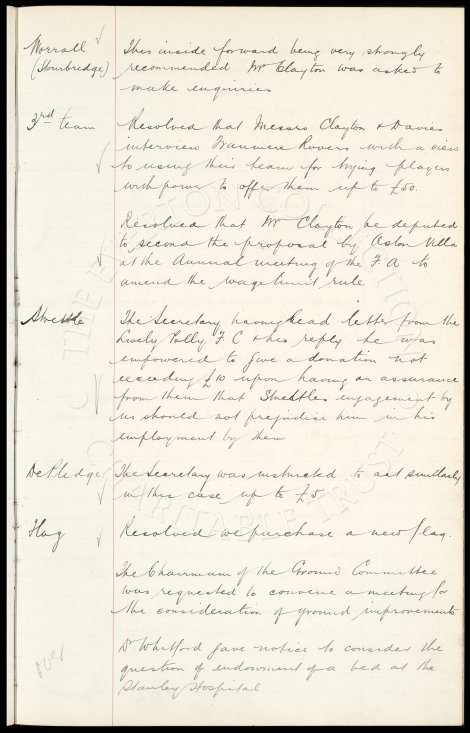 Worrall This inside forward being very strongly
(Stourbridge) recommended Mr Clayton was asked to
make enquiries
3rd team Resolved that Messrs Clayton & Davies
interview Tranmere Rovers with a view
to using their team for trying players
with power to offer them up to £50.
Resolved that Mr Clayton be deputed
to second the proposal by Aston Villa
at the Annual meeting of the F A to
amend the wage limit rule
Strettle The Secretary having read letter from the
Lively Polly F. C & his reply he was
empowered to give a donation not
exceeding £10 upon having an assurance
from them that Strettles engagement by
us should not prejudice him in his
employment by them
De Pledge The Secretary was instructed to act similarly
in this case up to £5
Flag Resolved we purchase a new flag.
The Chairman of the Ground Committee
was requested to convene a meeting for
the consideration of ground improvements
Dr Whitford gave notice to consider the
question of endowment of a bed at the
Stanley Hospital
over
THE EVERTON COLLECTION
CHARITABLE TRUST